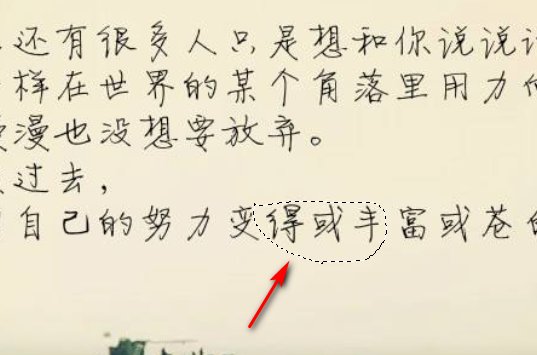 还有很多人只是想和你说说
样在世界的某个角落里用力
漫也没想要放弃。
过去，
自己的努力变得或丰富或苍